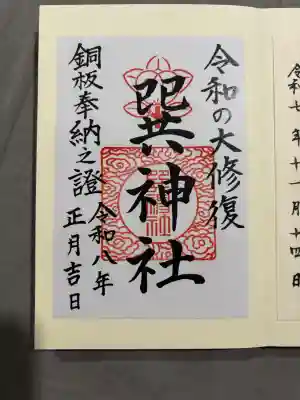 令和の大修復
巽神社
銅板奉納之證
令和八年
正月吉日
令和七年十一月十四日